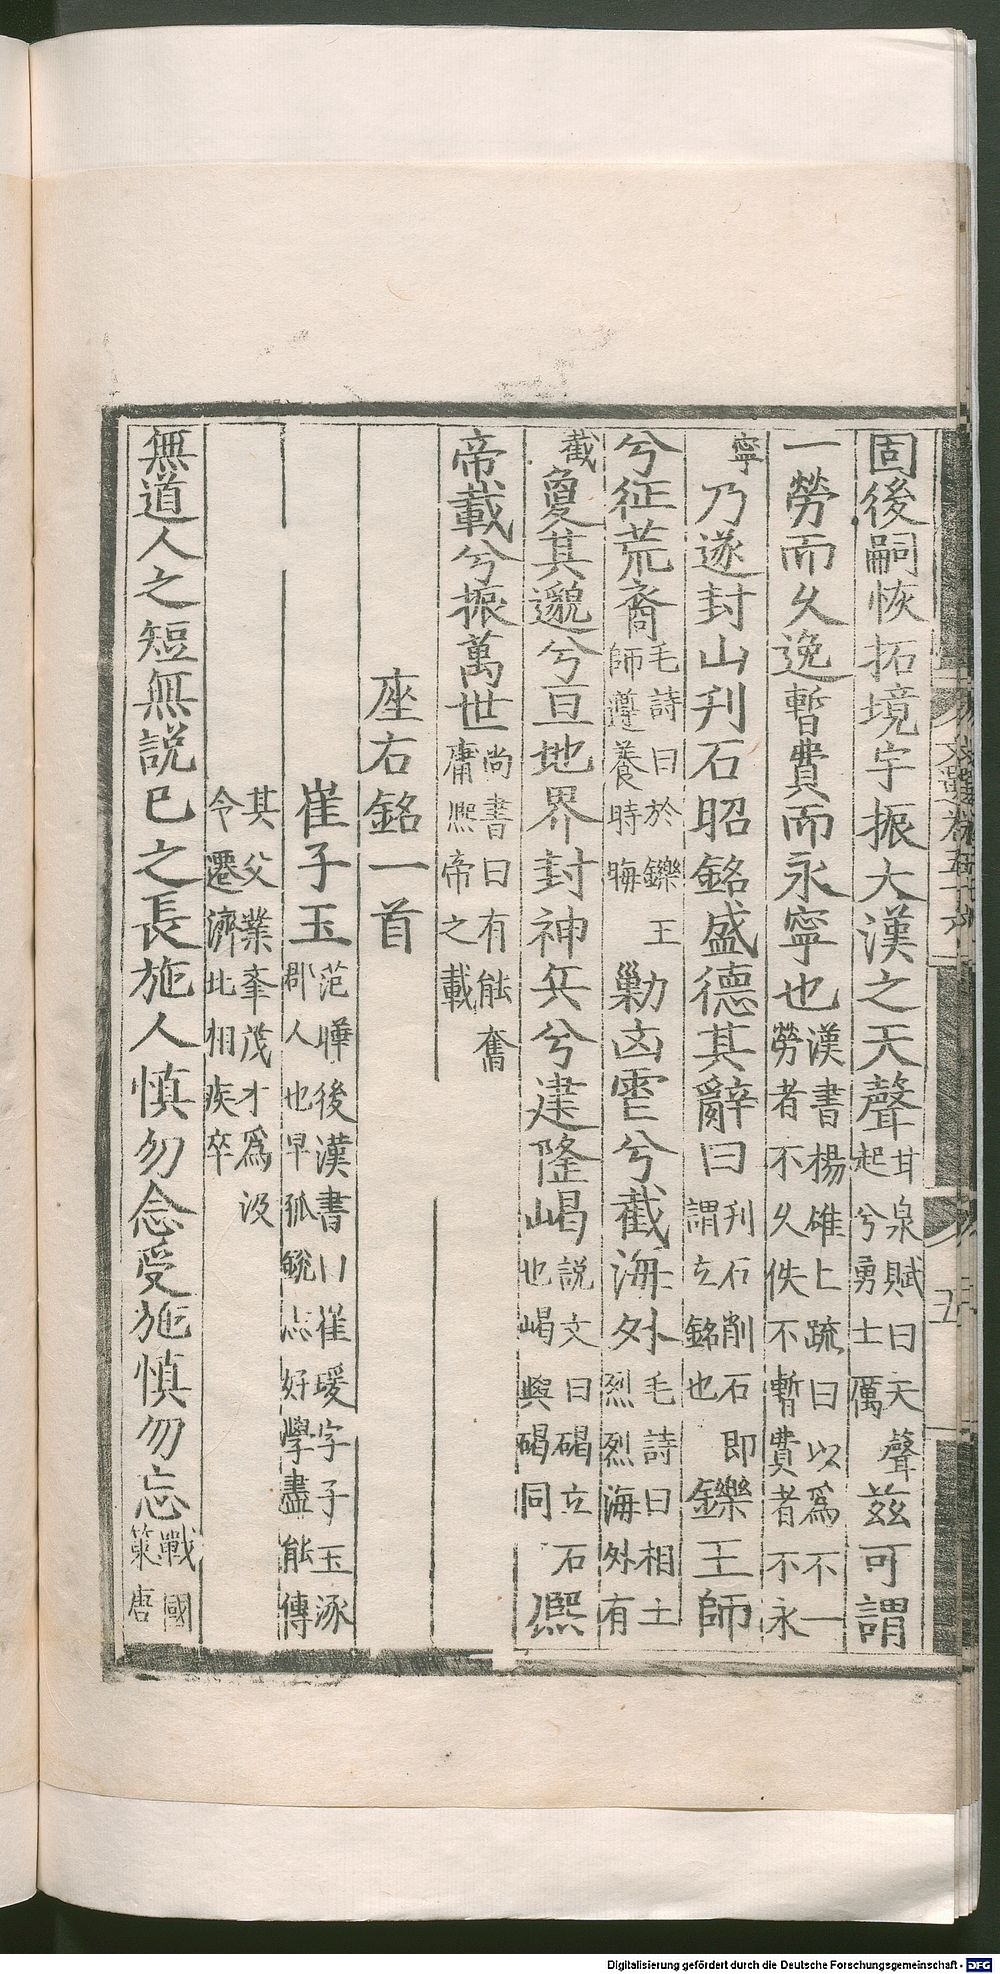 固後嗣恢拓境宇振大漢之天聲甘泉賦曰天聲起兮勇士厲兹可謂
一勞而久逸暫費而永寧也漢書楊雄上疏曰以爲不一勞者不久佚不暫費者不永
寧乃遂封山刋石昭銘盛德其辭曰刋石削石即謂立銘也鑠王師
兮征荒裔毛詩曰於鑠王師遵養時晦勦凶虐兮截海外毛詩曰相土烈烈海外有
截敻其邈兮亘地界封神丘兮建隆嵑說文曰碣立石也嵑與碣同熈
帝載兮振萬世尚書曰有能奮庸熈帝之載
座右銘一首
崔子玉范曄後漢書曰崔瑗字子玉涿郡人也早孤銳志好學盡能傳
其父業舉茂才爲汲令遷濟北相疾卒
無道人之短無説已之長施人慎勿念受施慎勿忘戰國策唐
文選卷五十六
五
Digitalisierung gefördert durch die Deutsche Forschungsgemeinschaft - DFG